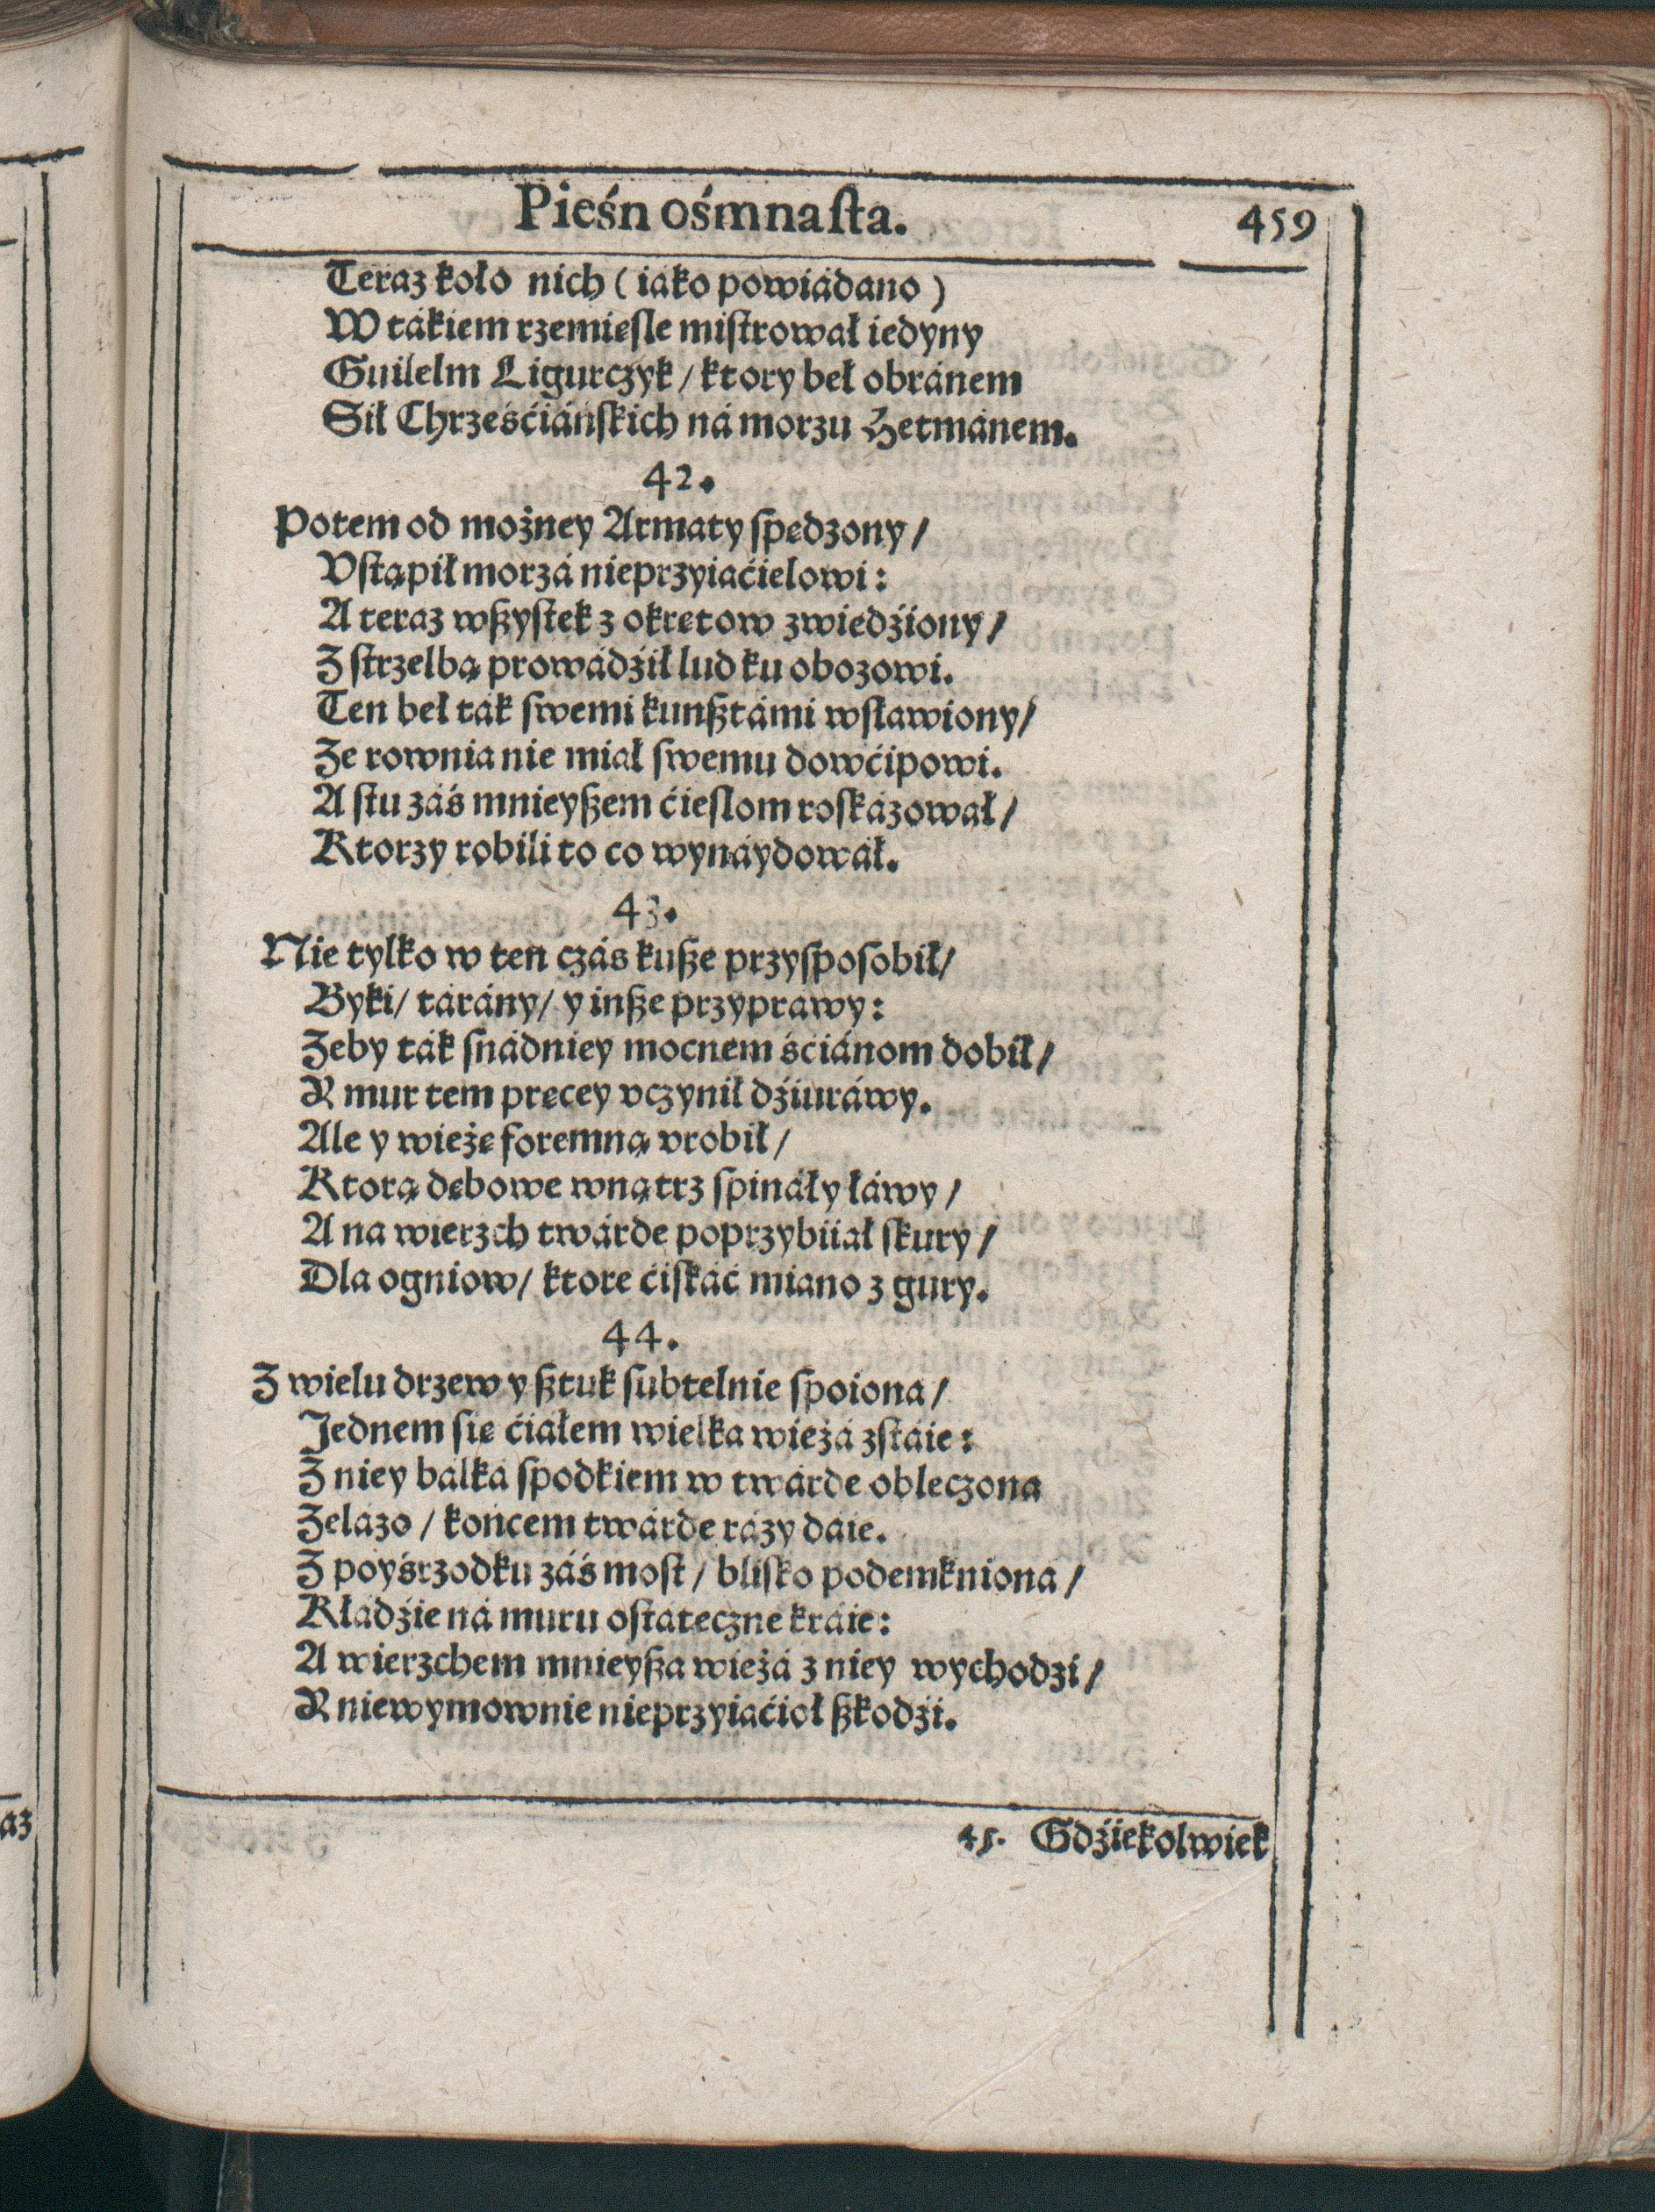 Pieśń ośmnaſta. 459
Teraz koło nich (iáko powiádano)
W tákiem rzemieśle miſtrował iedyny
Guilelm Ligurczyk / ktory beł obránem
Sił Chrześćiáńſkich ná morzu Hetmánem.
42.
Potem od możney Armaty ſpędzony /
Vſtąpił morzá nieprzyiaćielowi:
A teraz wßyſtek z okrętow zwiedźiony /
Z ſtrzelbą prowádźił lud ku obozowi.
Ten beł ták ſwemi kunßtámi wſławiony /
Ze rownia nie miał ſwemu dowćipowi.
A ſtu záś mnieyßem ćieſlom roſkázował /
Ktorzy robili to co wynáydował.
43.
Nie tylko w ten czás kuße przyſpoſobił /
Byki / tárány / y inße przyprawy:
Zeby ták ſnádniey mocnem śćiánom dobił /
Y mur tem pręcey vczynił dźiuráwy.
Ale y wieżę foremną vrobił /
Ktorą dębowe wnątrz ſpináły łáwy /
A na wierzch twárde poprzybiiał ſkury /
Dla ogniow / ktore ćiſkáć miano z gury.
44.
Z wielu drzew y ßtuk ſubtelnie ſpoiona /
Jednem ſię ćiałem wielka wieżá zſtáie:
Z niey bálká ſpodkiem w twárde obleczona
Zelázo / końcem twárde rázy dáie.
Z poyśrzodku záś moſt / bliſko podemkniona /
Kłádźie ná muru oſtáteczne kráie:
A wierzchem mnieyßa wieżá z niey wychodzi /
Y niewymownie nieprzyiaćioł ßkodźi.
45. Gdźiekolwiek
az